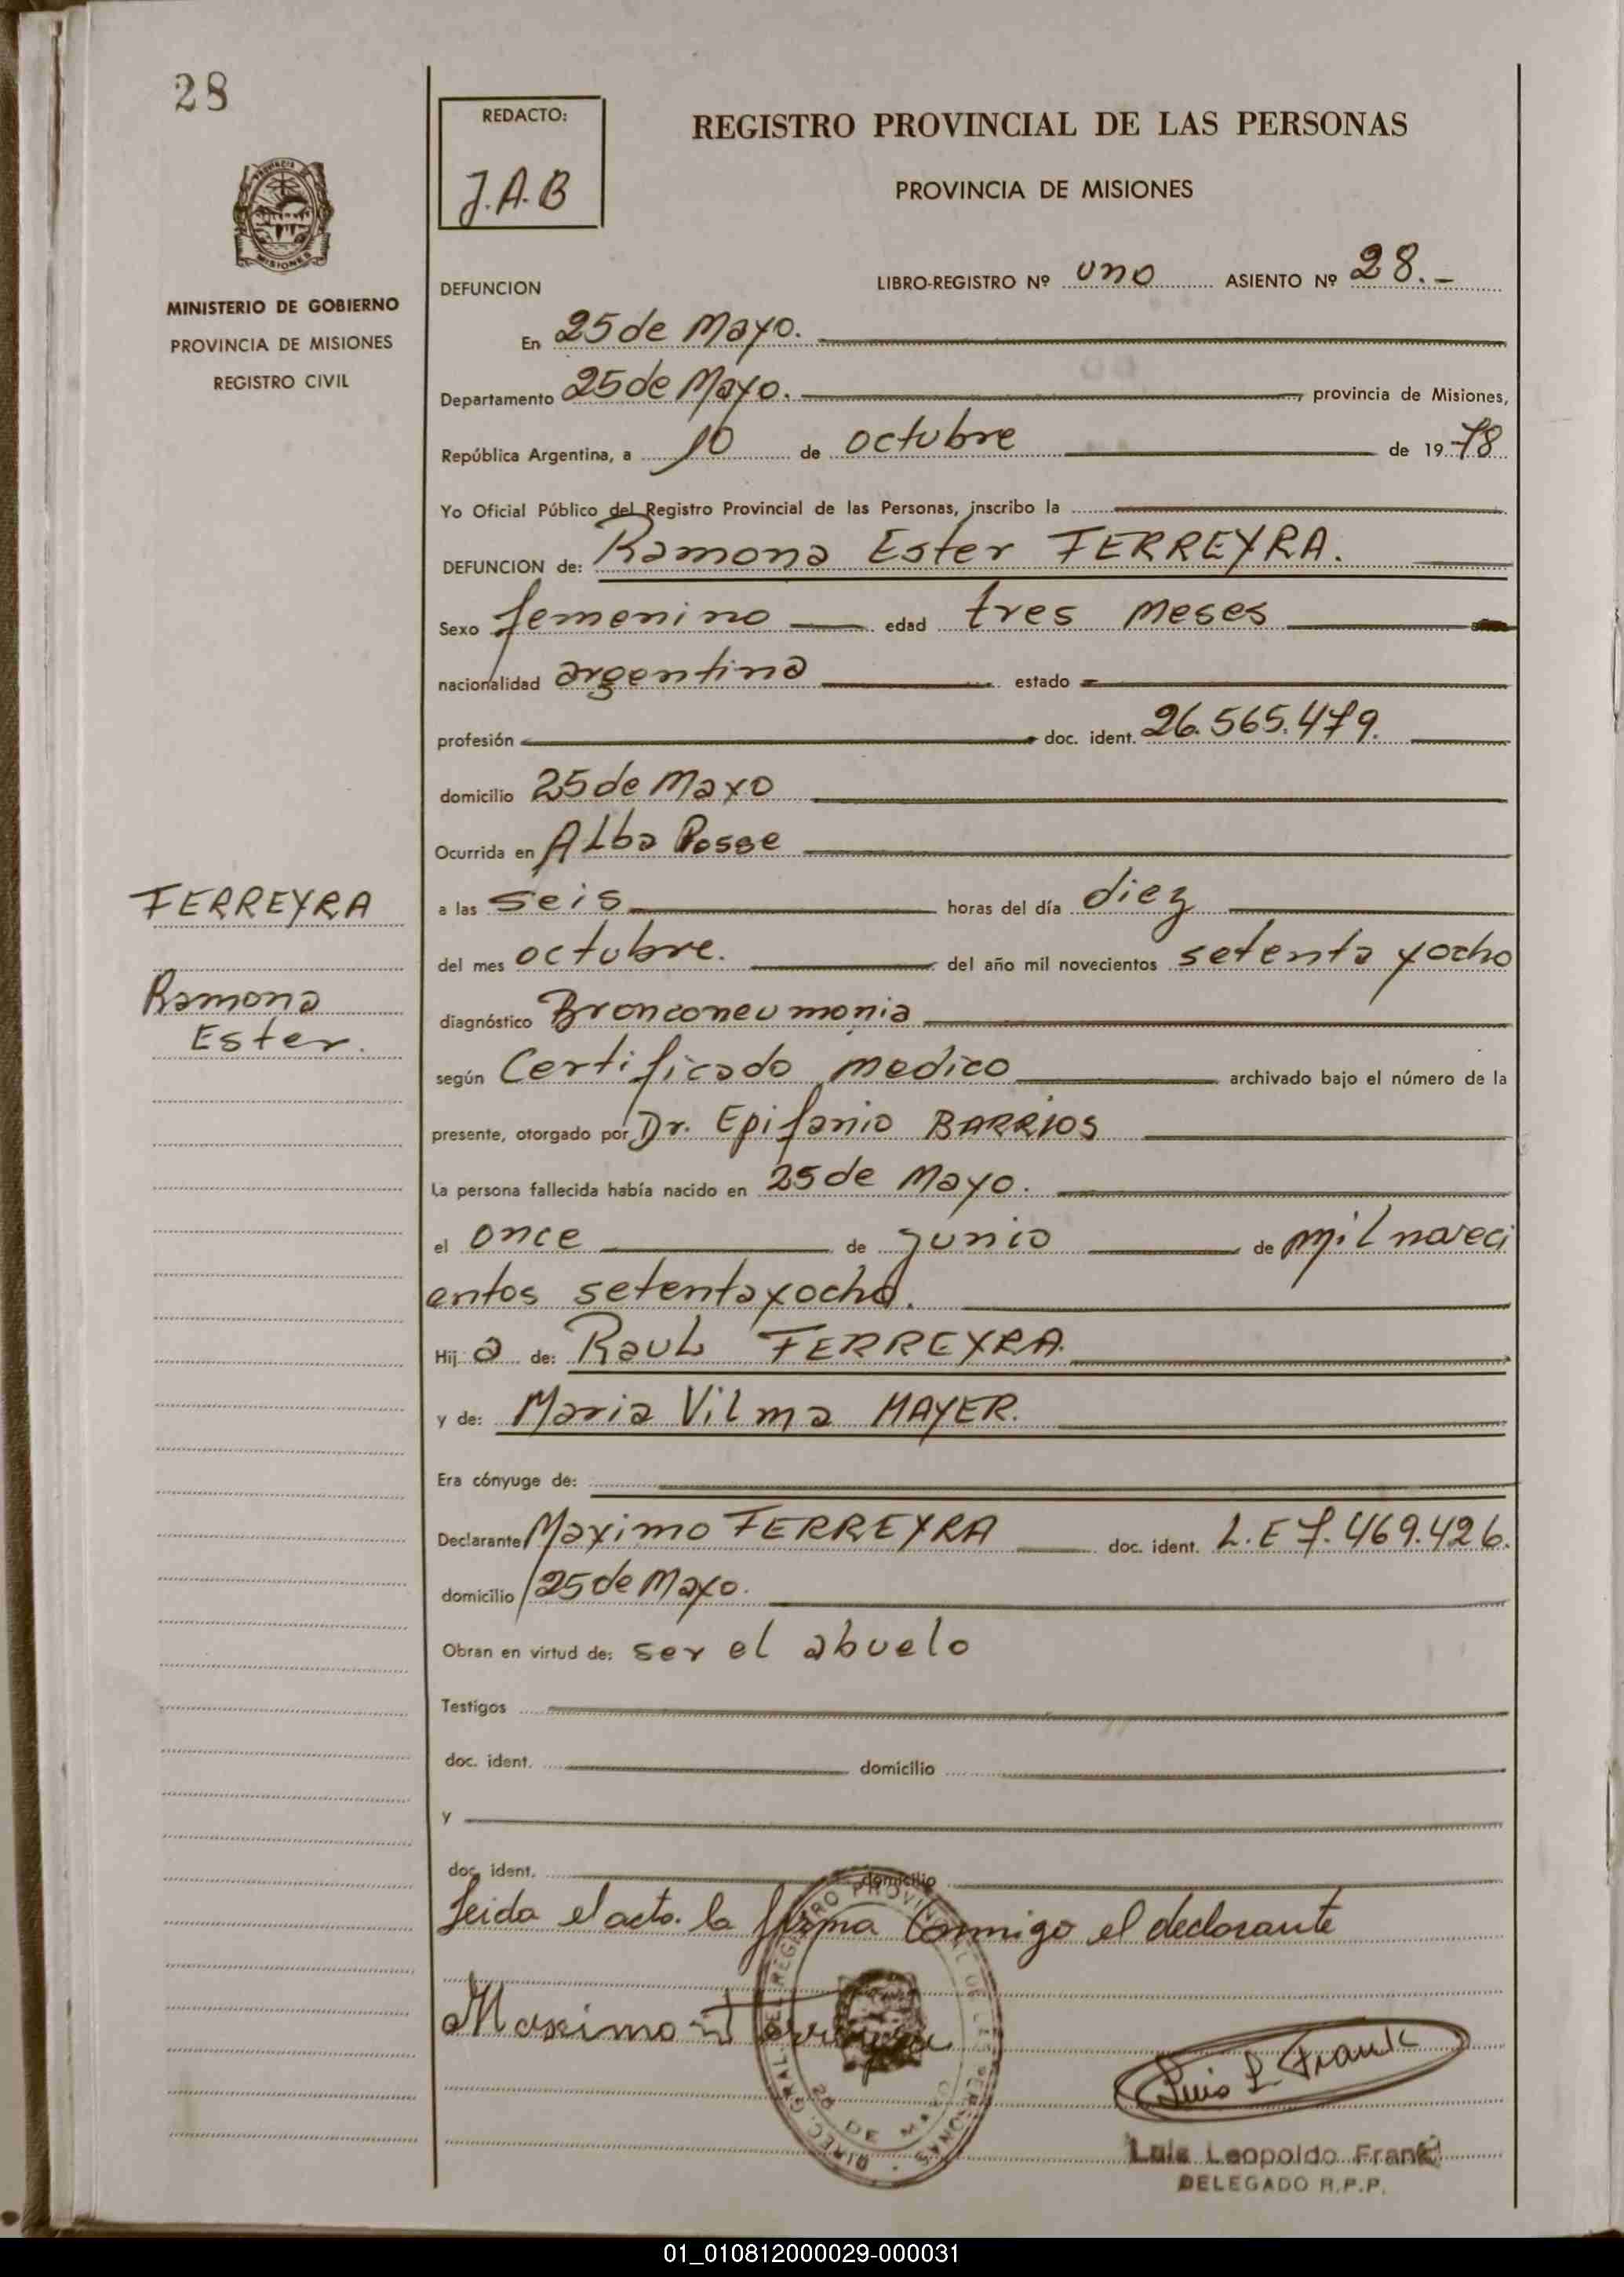 28
REDACTO:
J.A.B
REGISTRO PROVINCIAL DE LAS PERSONAS
PROVINCIA DE MISIONES
MISIONES
MINISTERIO DE GOBIERNO
PROVINCIA DE MISIONES
REGISTRO CIVIL
DEFUNCION
LIBRO-REGISTRO Nº uno ASIENTO Nº 28.-
En 25 de Mayo.
Departamento 25 de Mayo. provincia de Misiones,
República Argentina, a 10 de octubre de 1978
Yo Oficial Público del Registro Provincial de las Personas, inscribo la
DEFUNCION de: Ramona Ester FERREYRA.
Sexo femenino edad tres meses
nacionalidad argentina estado
profesión doc. ident. 26.565.479.
domicilio 25 de Mayo
Ocurrida en Alba Posse
FERREYRA
a las seis horas del día diez
del mes octubre. del año mil novecientos setenta y ocho
Ramona
Ester.
diagnóstico Bronconeumonia
según Certificado medico archivado bajo el número de la
presente, otorgado por Dr. Epifanio BARRIOS
La persona fallecida había nacido en 25 de Mayo.
el once de junio de mil noveci
entos setenta y ocho.
Hij a de: Raul FERREYRA.
y de: Maria Vilma MAYER.
Era cónyuge de:
Declarante Maximo FERREYRA doc. ident. L.E 7.469.426.
domicilio 25 de Mayo.
Obran en virtud de: ser el abuelo
Testigos
doc. ident. domicilio
y
doc. ident. domicilio
Leida el acto. la firma conmigo el declarante
Maximo Ferreyra
DIREC. GRAL. DEL REGISTRO PROVINCIAL DE LAS PERSONAS
25 DE MAYO
Luis L. Frank
Luis Leopoldo Frank
DELEGADO R.P.P.
01_010812000029-000031